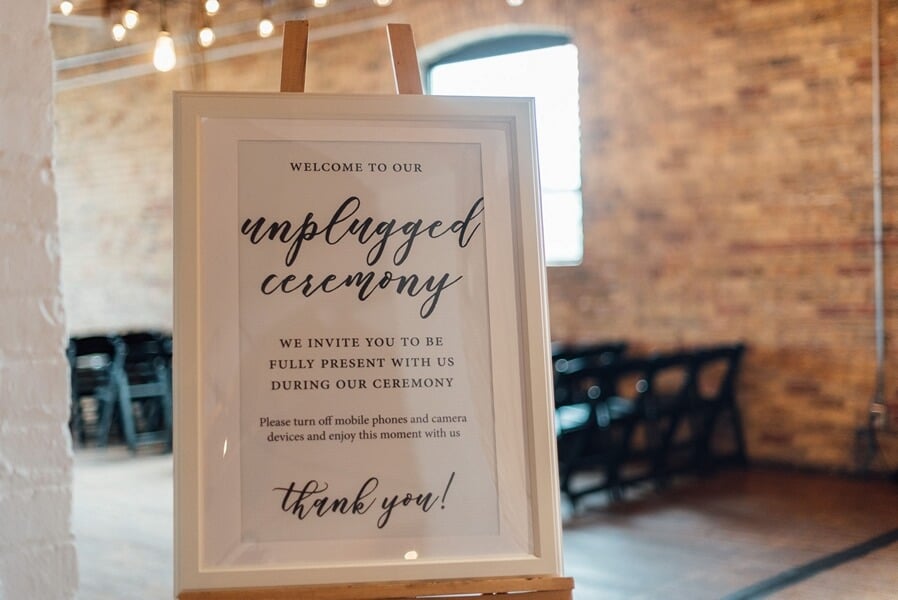 WELCOME TO OUR
unplugged
ceremony
WE INVITE YOU TO BE
FULLY PRESENT WITH US
DURING OUR CEREMONY
Please turn off mobile phones and camera
devices and enjoy this moment with us
thank you!